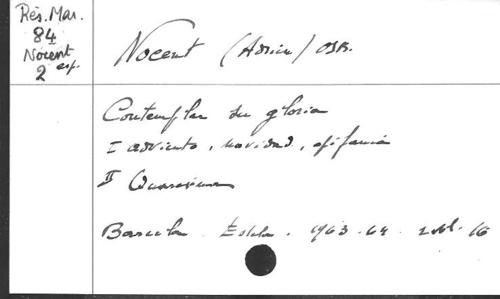 Rés. Mar.
84
Nocent
2 esp.
Nocent (Adrien) OSB.
Contemplar su gloria
I adviento, navidad, epifania
II Cuaresima
Barcelo. Estela. 1963-64. 2 vol. 16